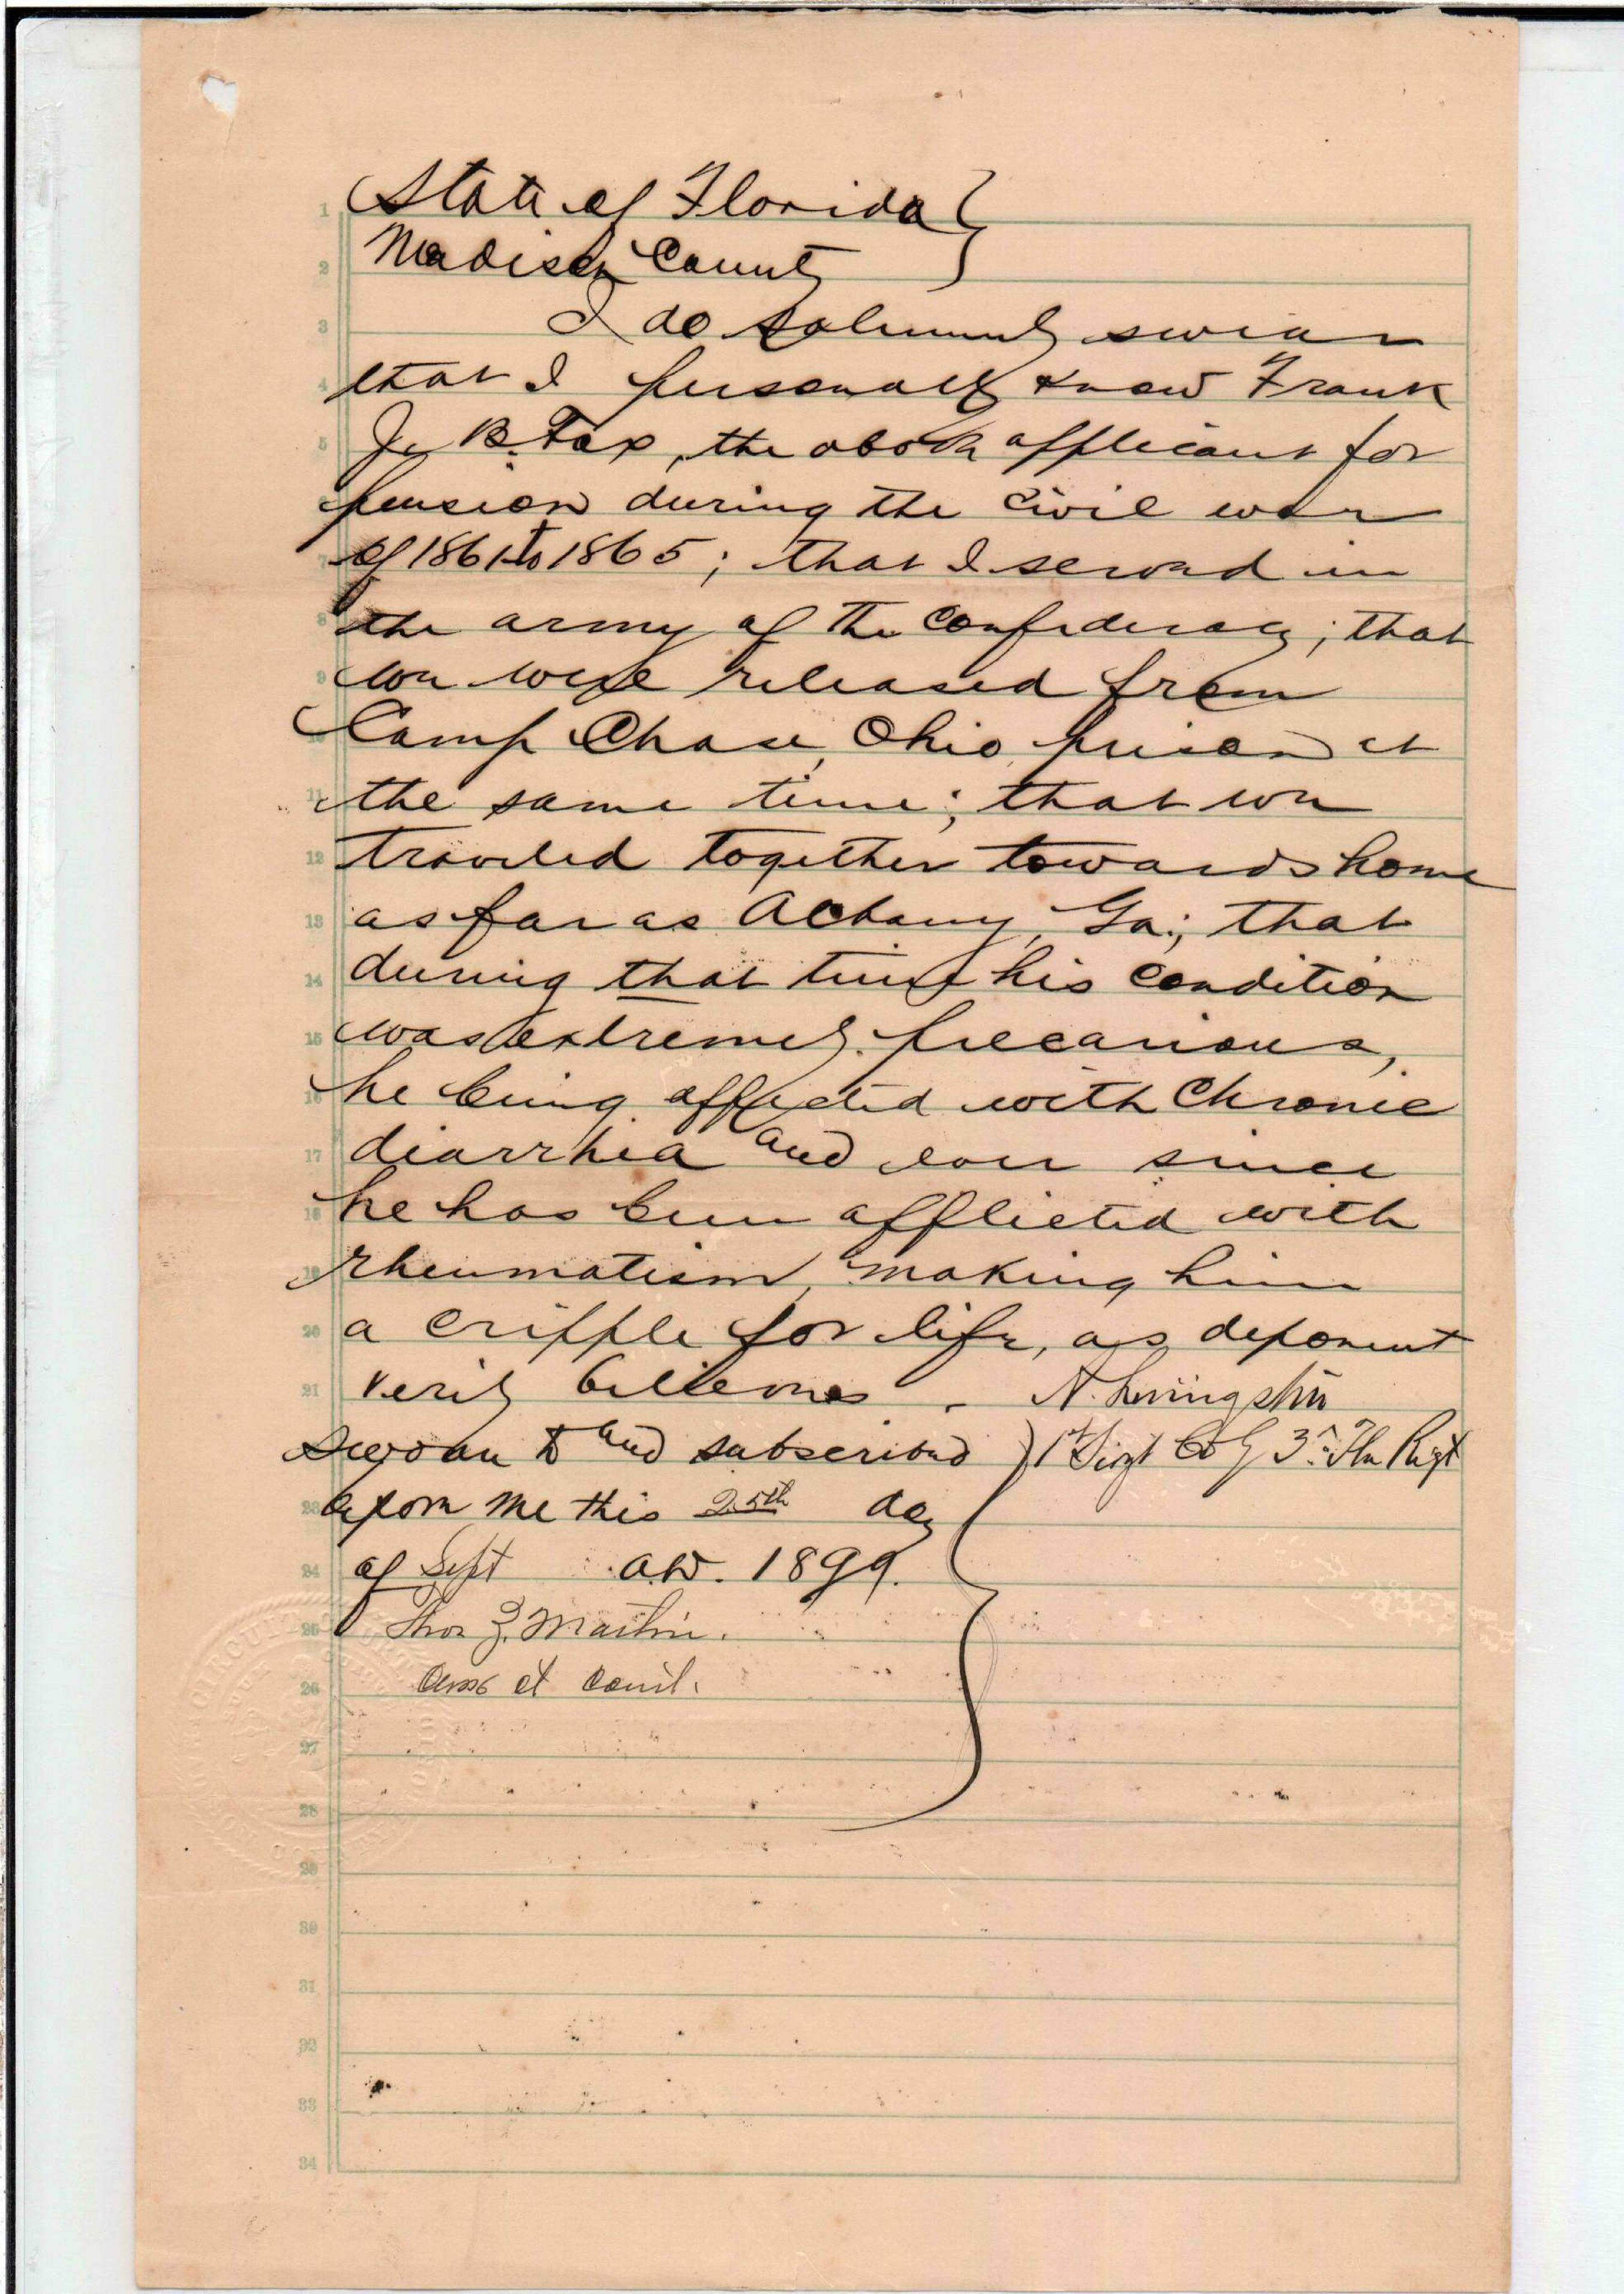 State of Florida
Madison County
I do solemnly swear
that I personally knew Frank
J. B. Fax, the above applicant for
pension during the civil war
of 1861 to 1865; that I served in
the army of the Confederacy; that
we were released from
Camp Chase, Ohio, prison at
the same time; that we
traveled together towards home
as far as Albany, Ga.; that
during that time his condition
was extremely precarious,
he being affected with Chronic
diarrhea and ever since
he has been afflicted with
rheumatism, making him
a cripple for life, as deponent
verily believes. N. Livingston
Sworn to and subscribed 1st Sergt Co G 3rd Fla Regt
before me this 25th day
of Sept A.D. 1899.
Thos Z. Martin.
Clerk ct Court.
CIRCUIT
1
2
3
4
5
7
8
9
11
12
13
14
15
16
17
18
19
20
21
23
24
25
26
27
28
29
30
31
32
33
34